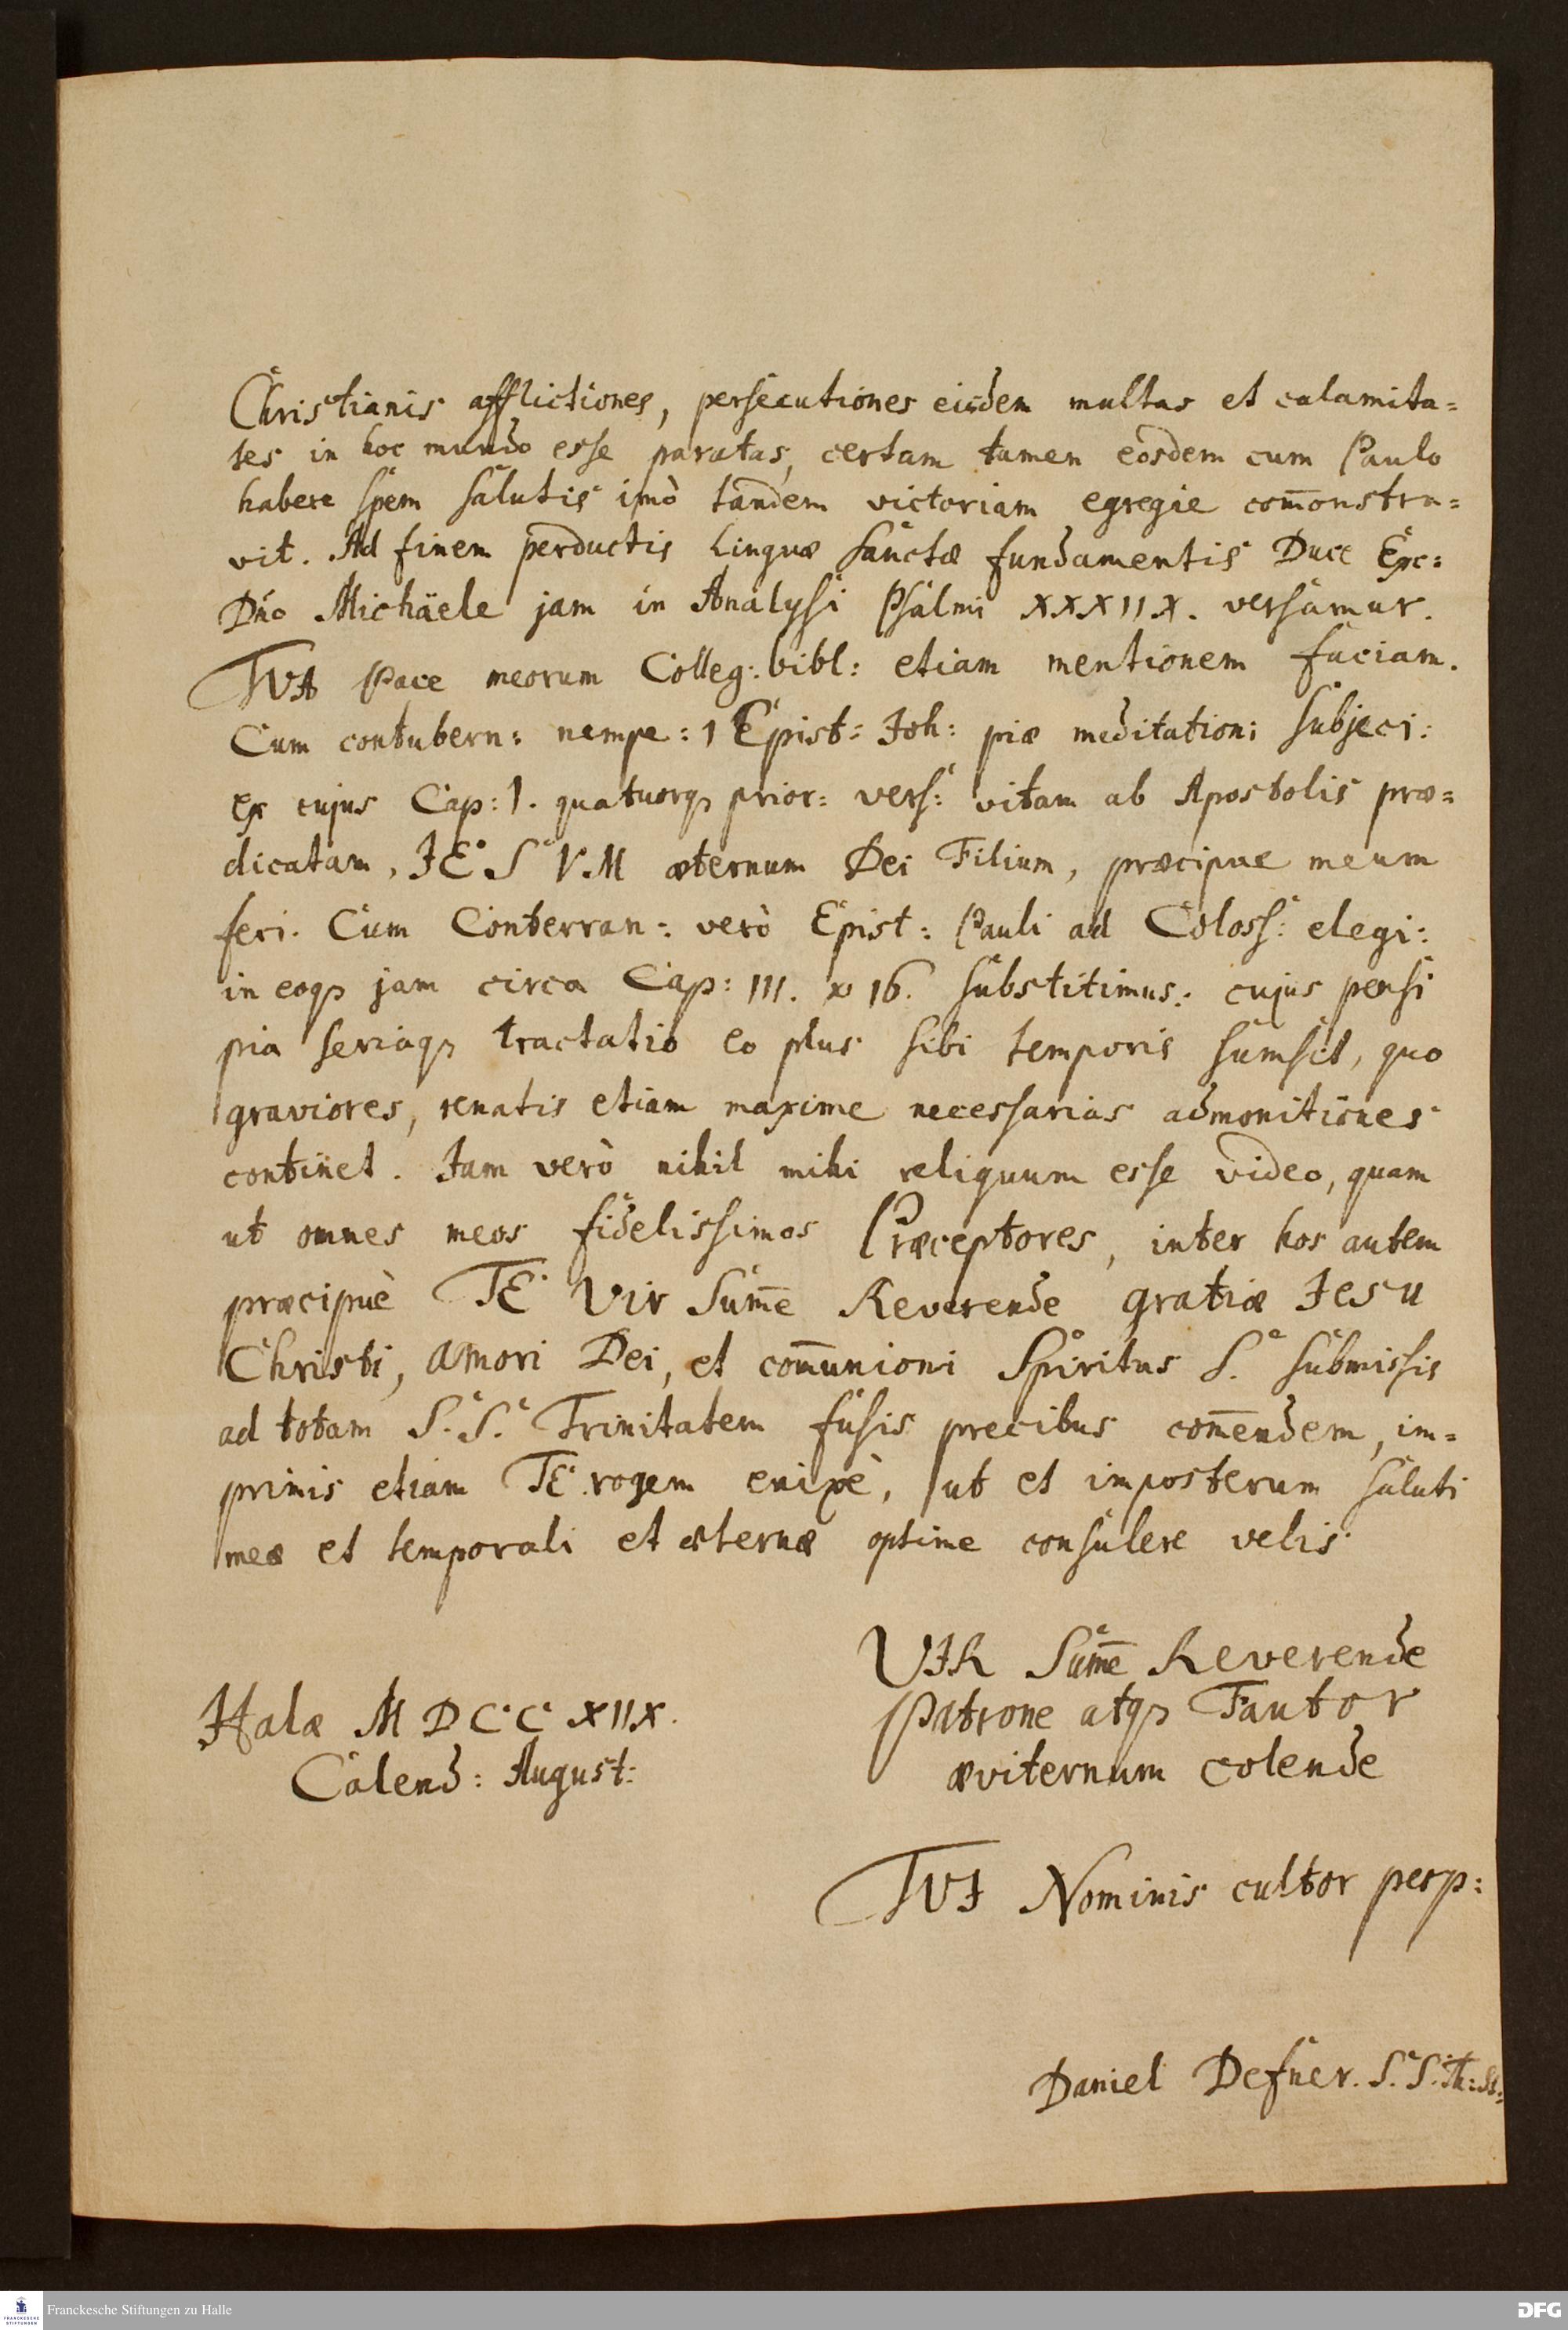 Christianis afflictiones, persecutiones eisdem multas et calamita=
tes in hoc mundo esse paratas, certam tamen eosdem cum Paulo
habere spem salutis imò tandem victoriam egregie com̄onstra=
vit. Ad finem perductis Linguæ sanctæ fundamentis Duce Exc:
Dño Michäele jam in Analysi Psalmi XXXIIX. versamur.
TVA Pace meorum Colleg: bibl: etiam mentionem faciam.
Cum contubern: nempe: 1 Epist: Joh: piæ meditationi subjeci:
ex cujus Cap: 1. quatuorqꝫ prior: vers: vitam ab Apostolis præ=
dicatam, JESVM æternum Dei Filium, præcipue meum
feci. Cum Conterran: verò Epist: Pauli ad Coloss: elegi:
in eoqꝫ jam circa Cap: III. ℣ 16. substitimus: cujus pensi
pia seriaqꝫ tractatio eo plus sibi temporis sumsit, quo
graviores, renatis etiam maxime necessarias admonitiones
continet. Jam verò nihil mihi reliquum esse video, quam
ut omnes meos fidelissimos Præceptores, inter hos autem
præcipuè TE Vir Sum̄e Reverende gratiæ Jesu
Christi, amori Dei, et com̄unioni Spiritus S. submissis
ad totam S. S. Trinitatem fusis precibus com̄endem, im=
primis etiam TE rogem enixè, ut et imposterum saluti
meæ et temporali et æternæ optime consulere velis
VIR Sum̄e Reverende
Patrone atqꝫ Fautor
æviternum colende
Halæ MDCCXIIX.
Calend: August:
TVI Nominis cultor perp:
Daniel Defner. S. S. Th: St:
Franckesche Stiftungen zu Halle
FRANCKESCHE STIFTUNGEN
DFG